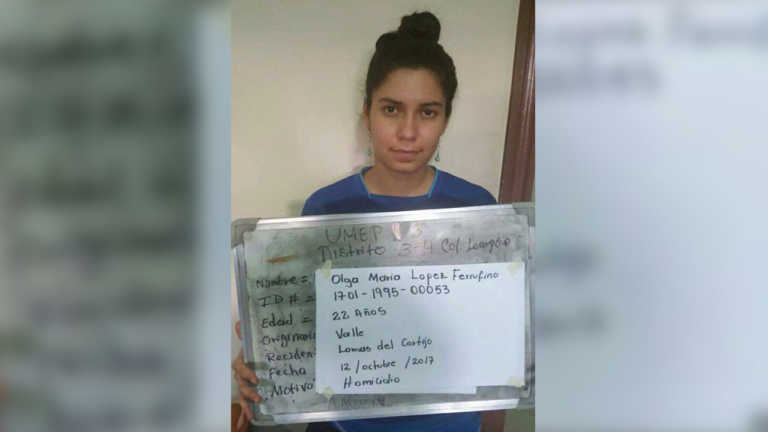 UMEP
Distrito 3-4 Col.
Nombre = Olga Maria Lopez Ferrufino
ID # = 1701-1995-00053
Edad = 22 Años
Originari Valle
Residen Lomas del Cortijo
Fecha 12/octubre/2017
Motivo Homicidio